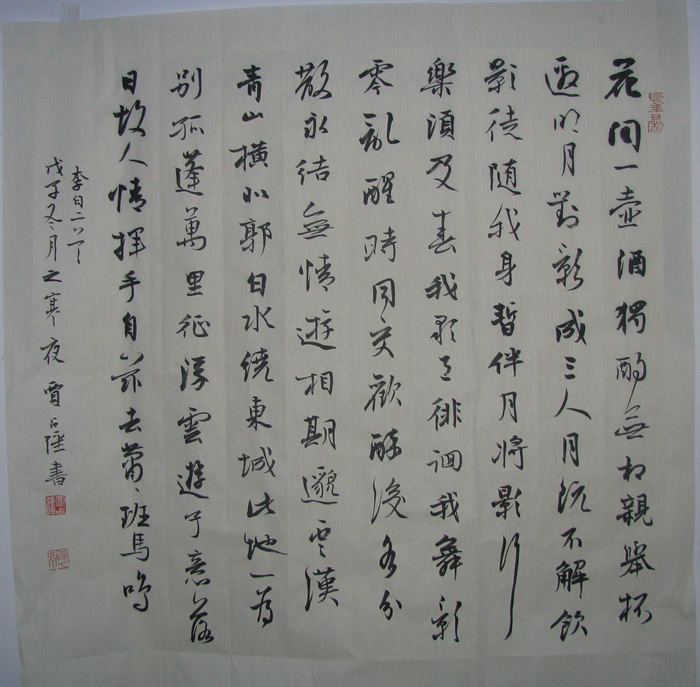 花間一壺酒獨酌無相親舉杯
邀明月對影成三人月既不解飲
影徒隨我身暫伴月將影行
樂須及春我歌月徘徊我舞影
零亂醒時同交歡醉後各分
散永結無情遊相期邈雲漢
青山橫北郭白水繞東城此地一為
別孤蓬萬里征浮雲遊子意落
日故人情揮手自茲去蕭〻班馬鳴
李白二首
戊子冬月之寒夜 賈 書